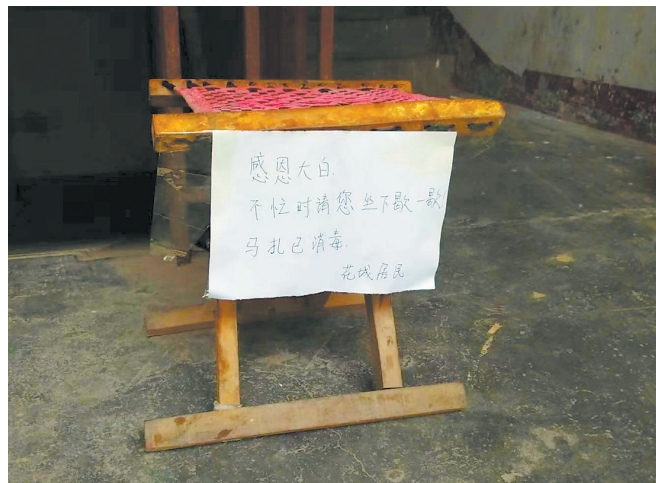 感恩大白.
不忙时请您坐下歇一歇
马扎已消毒.
花城居民